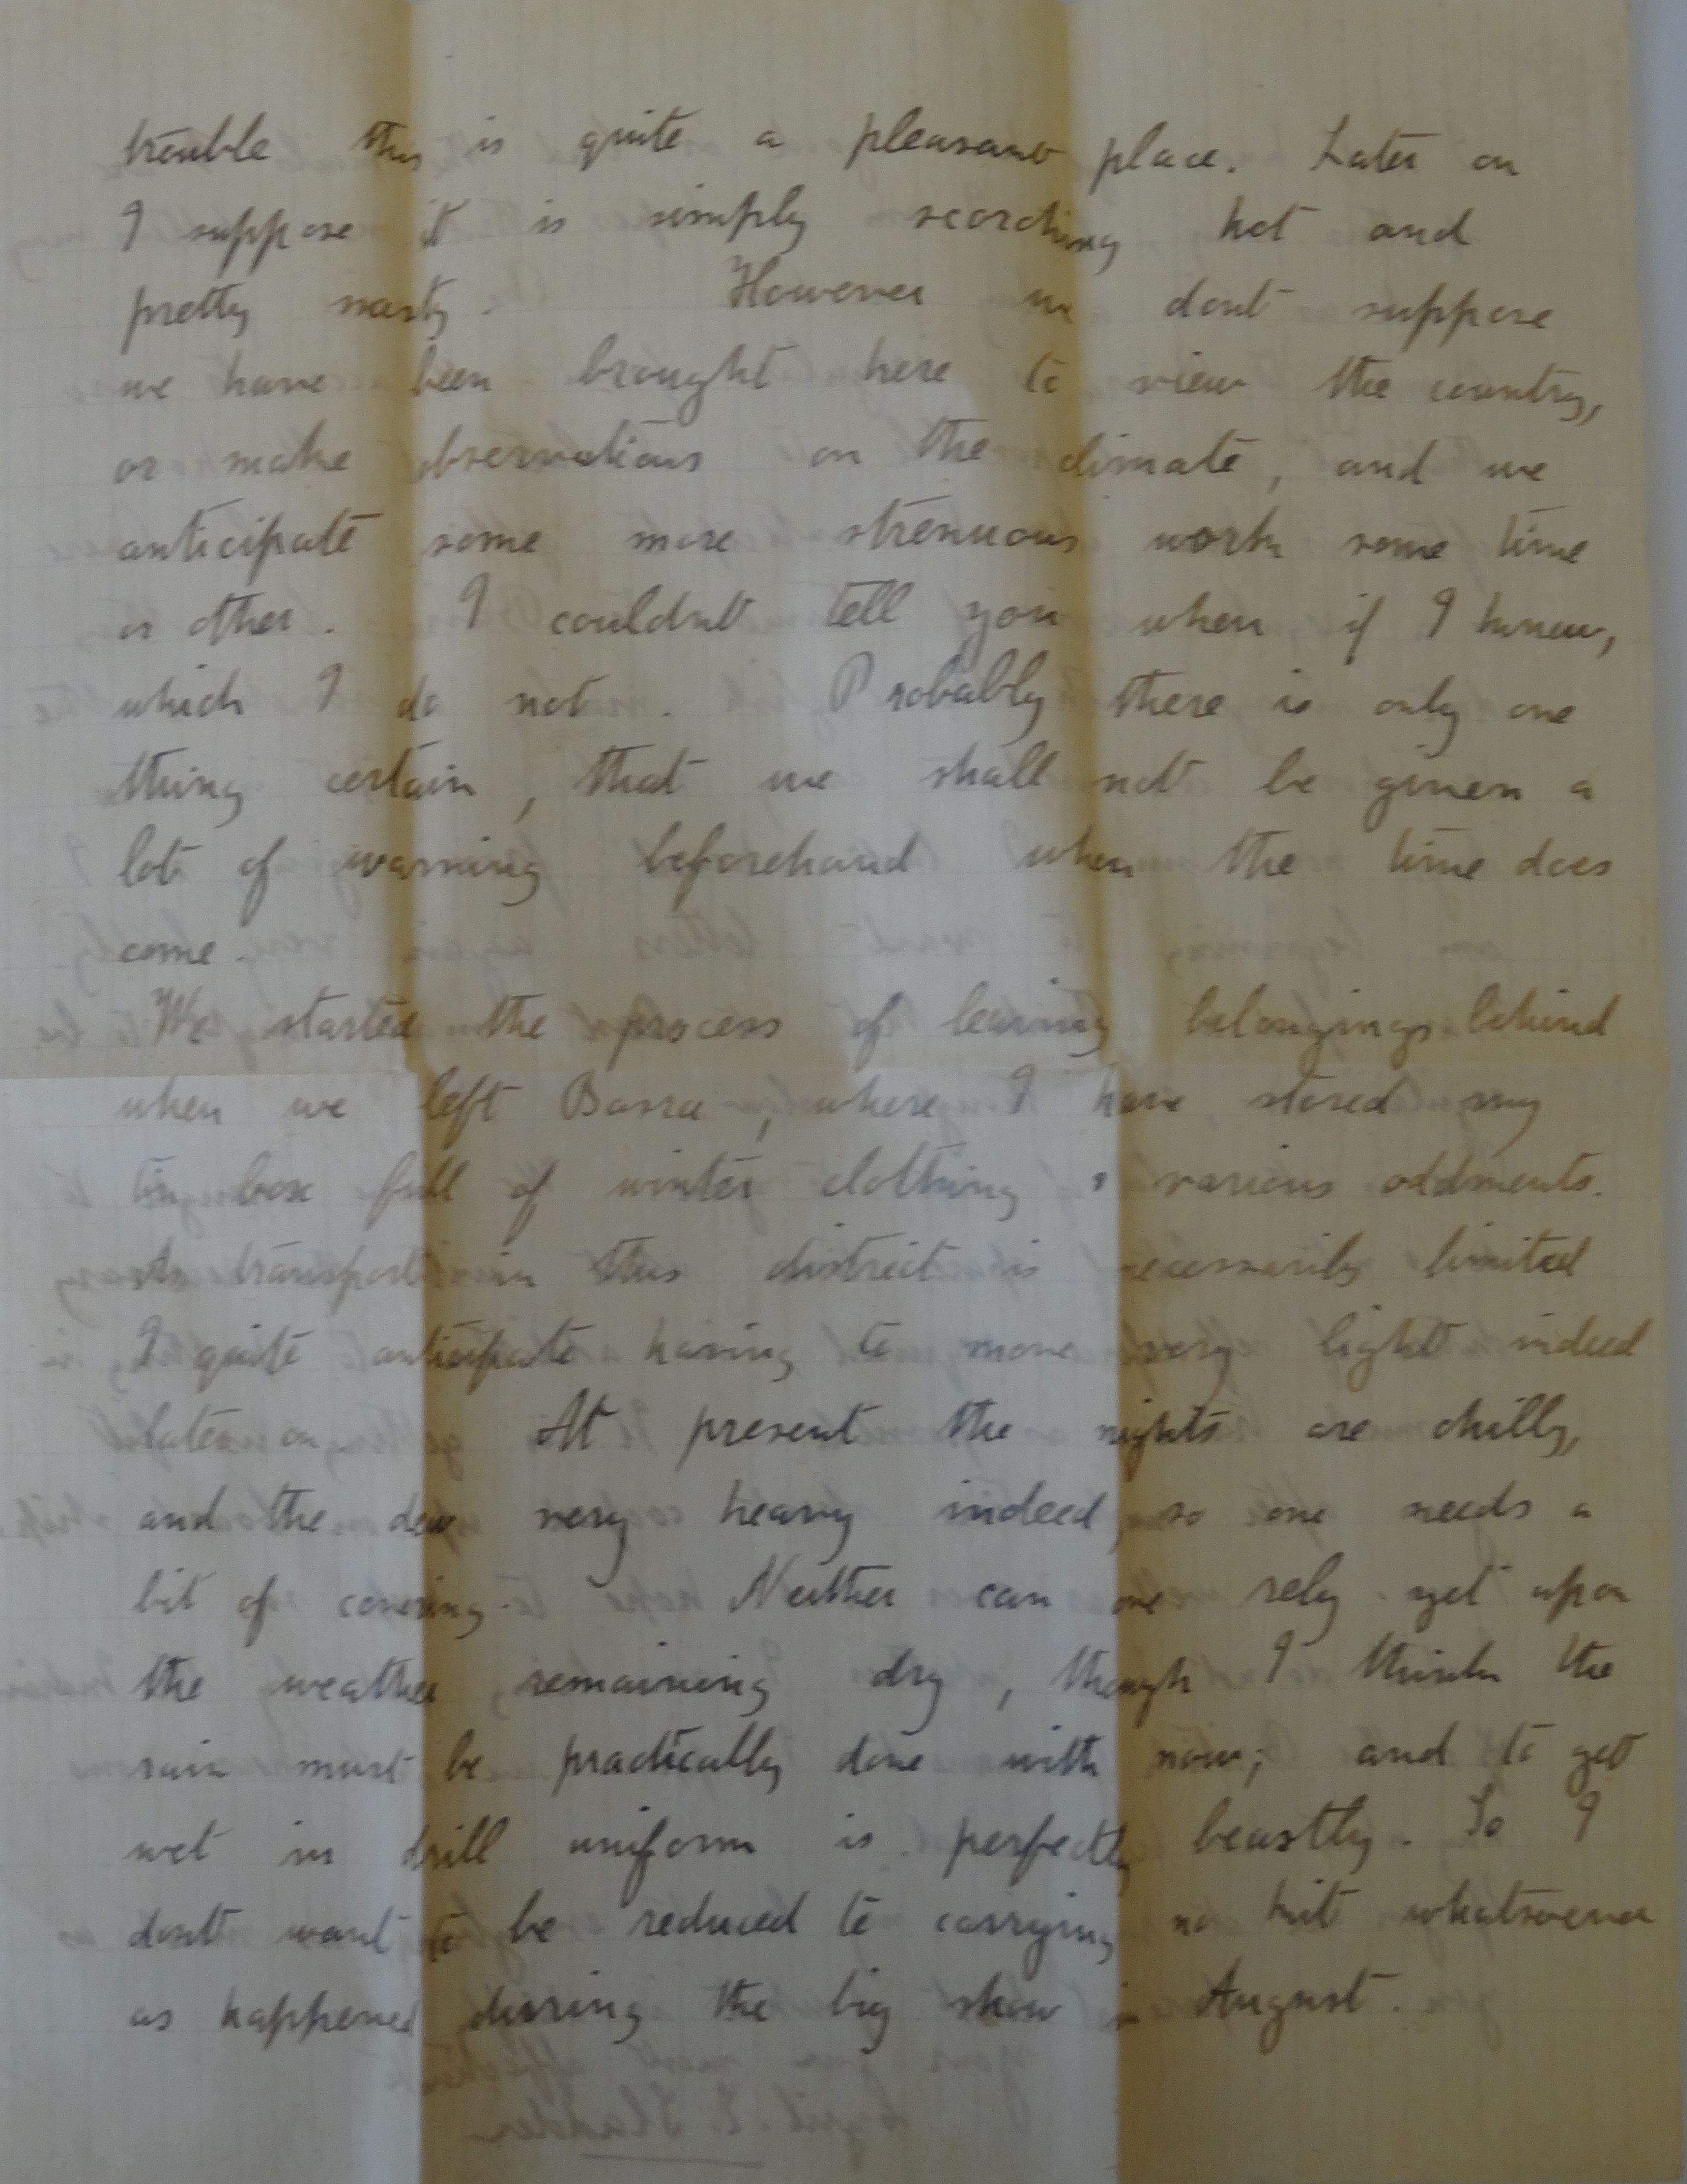 trouble this is quite a pleasant place. Later on
I suppose it is simply scorching hot and
pretty nasty. However we dont suppose
we have been brought here to view the country,
or make observations on the climate, and we
anticipate some more strenuous work some time
or other. I couldnt tell you when if I knew,
which I do not. Probably there is only one
thing certain, that we shall not be given a
lot of warning beforehand when the time does
come.
We started the process of leaving belongings behind
when we left Basra, where I have stored my
tin box full of winter clothing & various oddments.
As transport in this district is necessarily limited
I quite anticipate having to move very light indeed
later on. At present the nights are chilly,
and the dew very heavy indeed, so one needs a
bit of covering. Neither can one rely yet upon
the weather remaining dry, though I think the
rain must be practically done with now; and to get
wet in drill uniform is perfectly beastly. So I
dont want to be reduced to carrying no kit whatsoever
as happened during the big show in August.